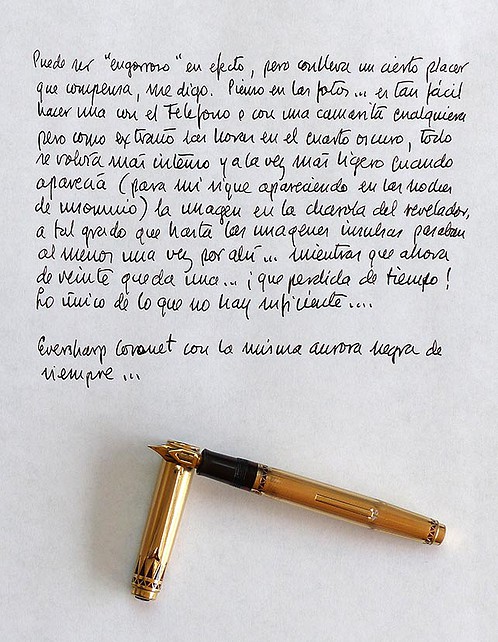 Puede ser "engorroso" en efecto, pero conlleva un cierto placer
que compensa, me digo. Pienso en las fotos... es tan fácil
hacer una con el Telefono o con una camarita cualquiera
pero como extraño las horas en el cuarto oscuro, todo
se volvia más intenso y a la vez más ligero cuando
aparecía (para mi sigue apareciendo en las noches
de insomnio) la imagen en la charola del revelador,
a tal grado que hasta las imagenes insulsas pasaban
al menos una vez por ahí... mientras que ahora
de veinte queda una... ¡que perdida de tiempo!
Lo único de lo que no hay suficiente....
Eversharp Coronet con la misma aurora negra de
siempre...